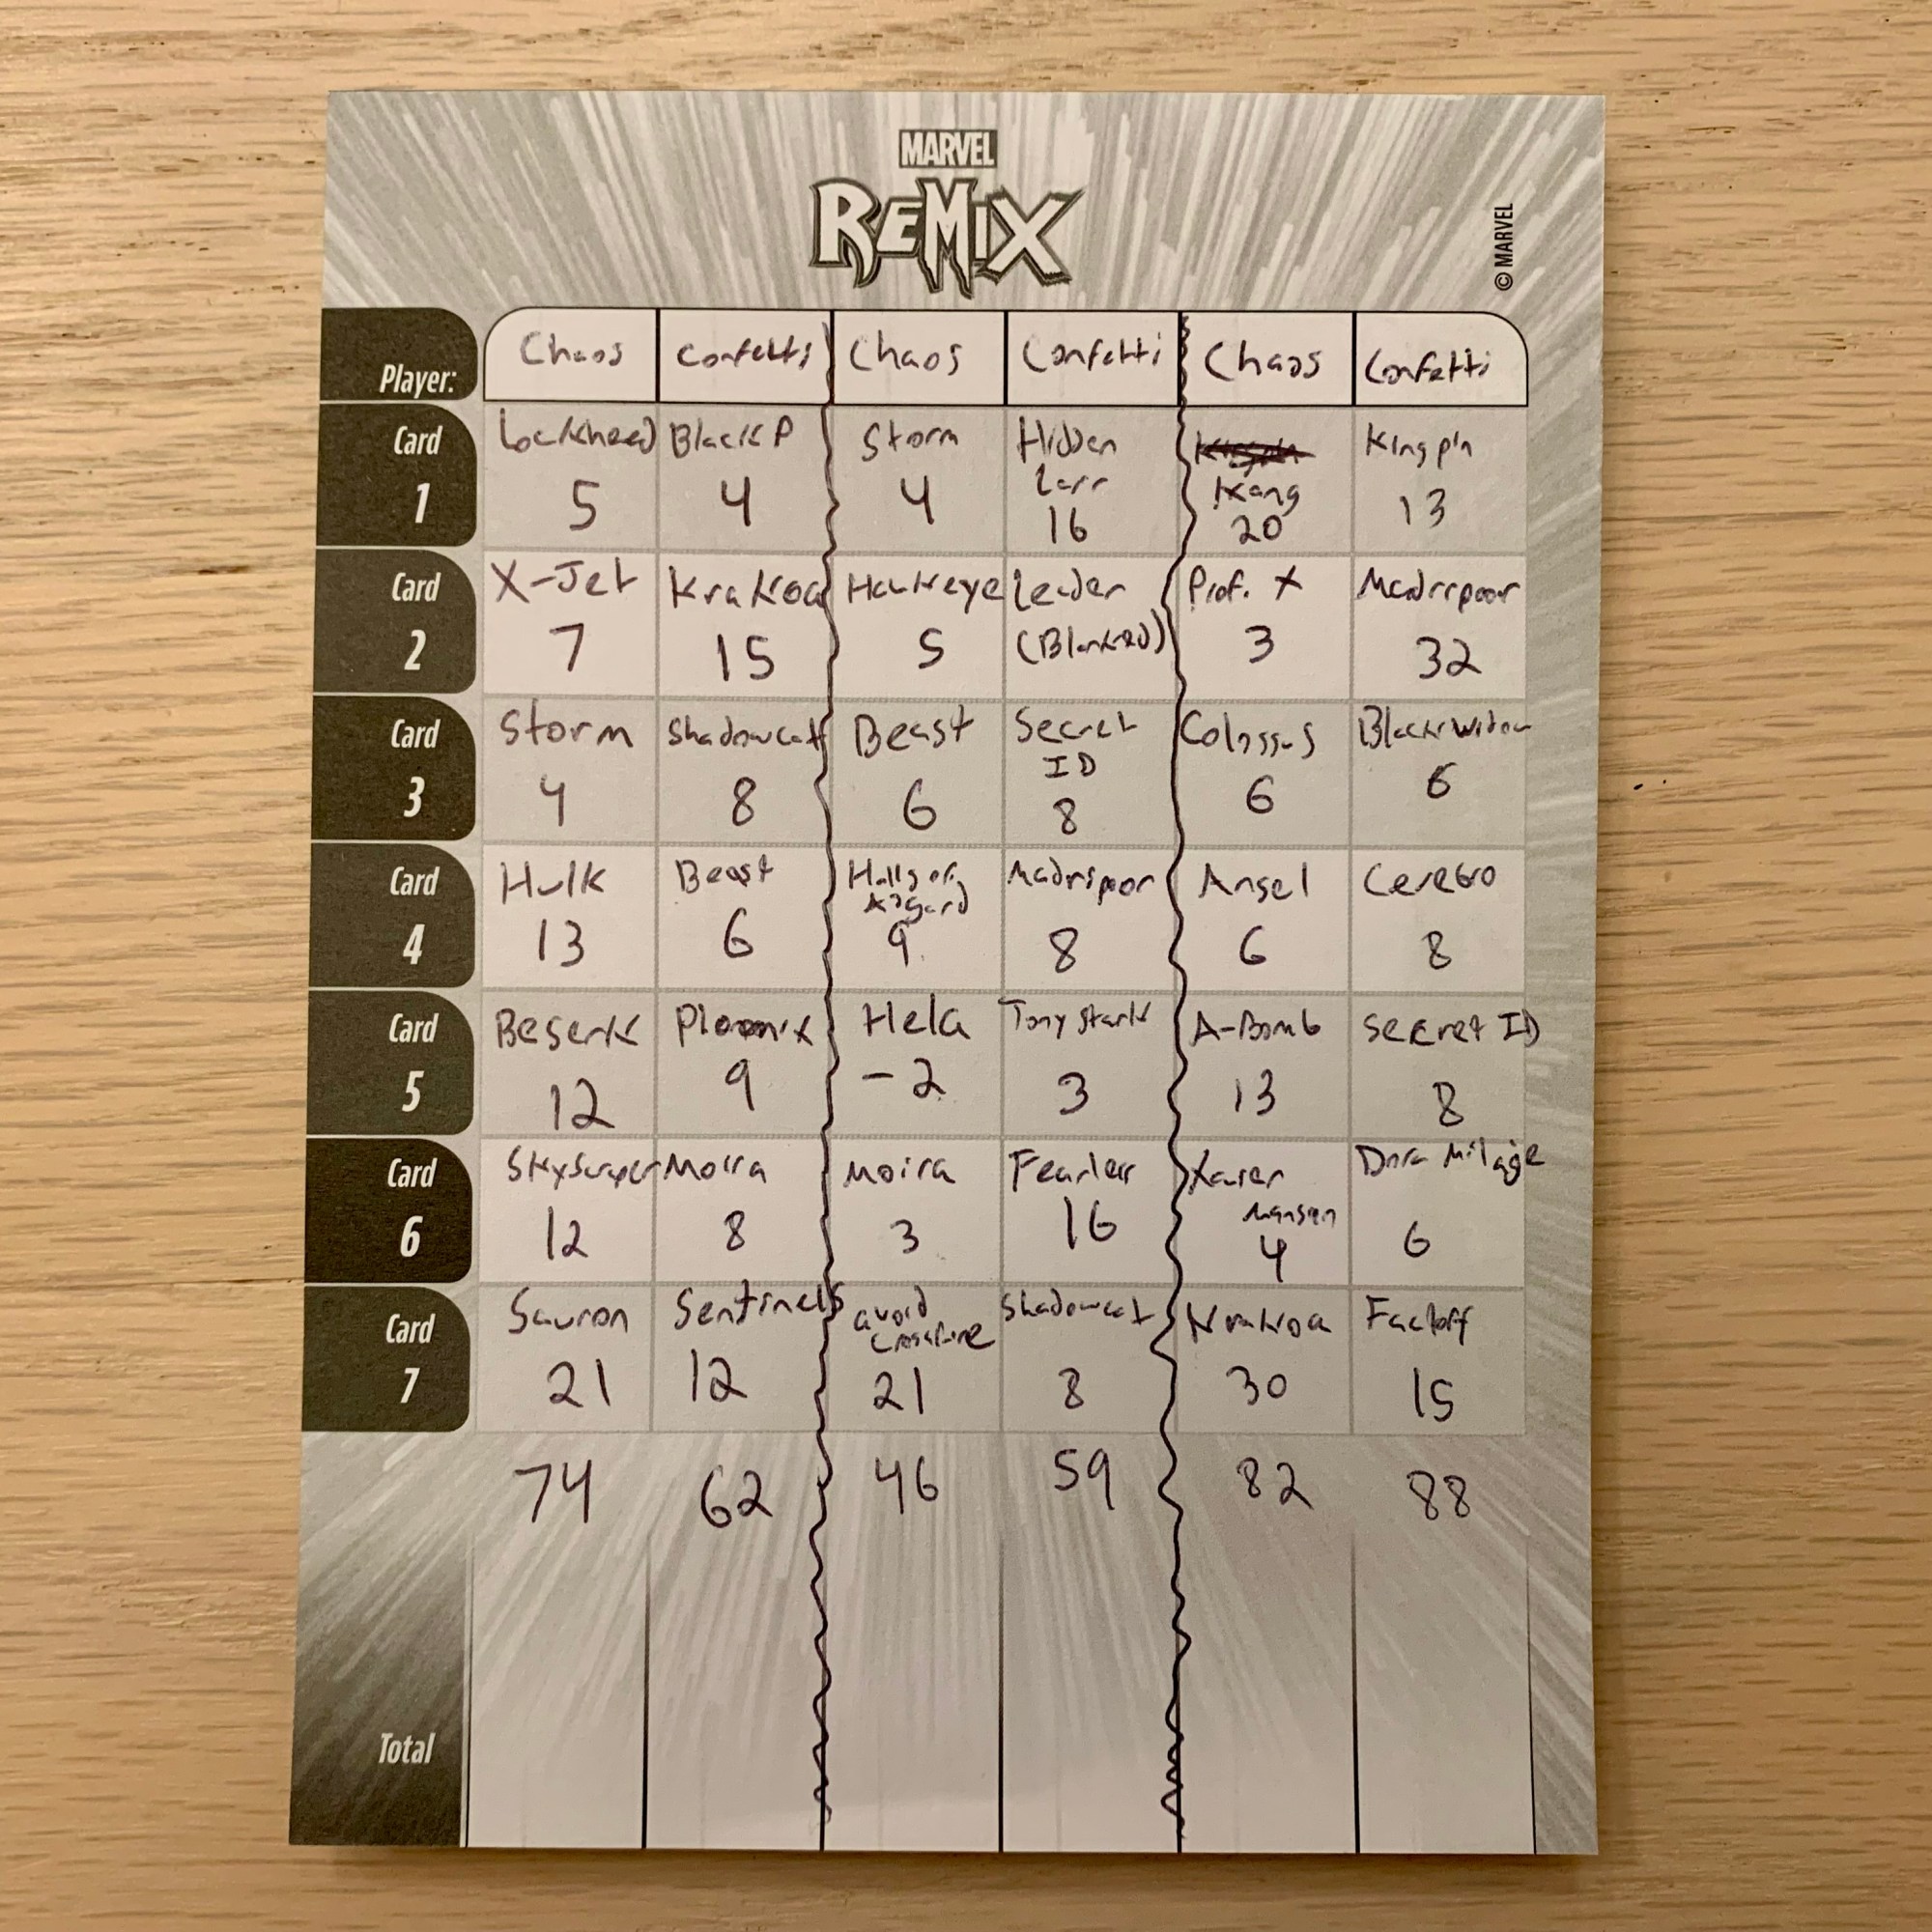 MARVEL
REMIX
© MARVEL
Player: Chaos Confetti Chaos Confetti Chaos Confetti
Card 1
Lockheed Black P Storm Hidden Lair Kang Kingpin
5 4 4 16 20 13
Card 2
X-Jet Krakoa Hawkeye Leader Prof. X Madripoor
7 15 5 (Blanked) 3 32
Card 3
Storm Shadowcat Beast Secret ID Colossus Black Widow
4 8 6 8 6 6
Card 4
Hulk Beast Halls of Asgard Madripoor Angel Cerebro
13 6 9 8 6 8
Card 5
Beserk Hela Tony Stark A-Bomb Secret ID
12 9 -2 3 13 8
Card 6
Skyscraper Moira Moira Fearless Xavier Mansion Dora Milaje
12 8 3 16 4 6
Card 7
Sauron Sentinels avoid crossfire Shadowcat Krakoa
21 12 21 8 30 15
74 62 46 59 82 88
Total